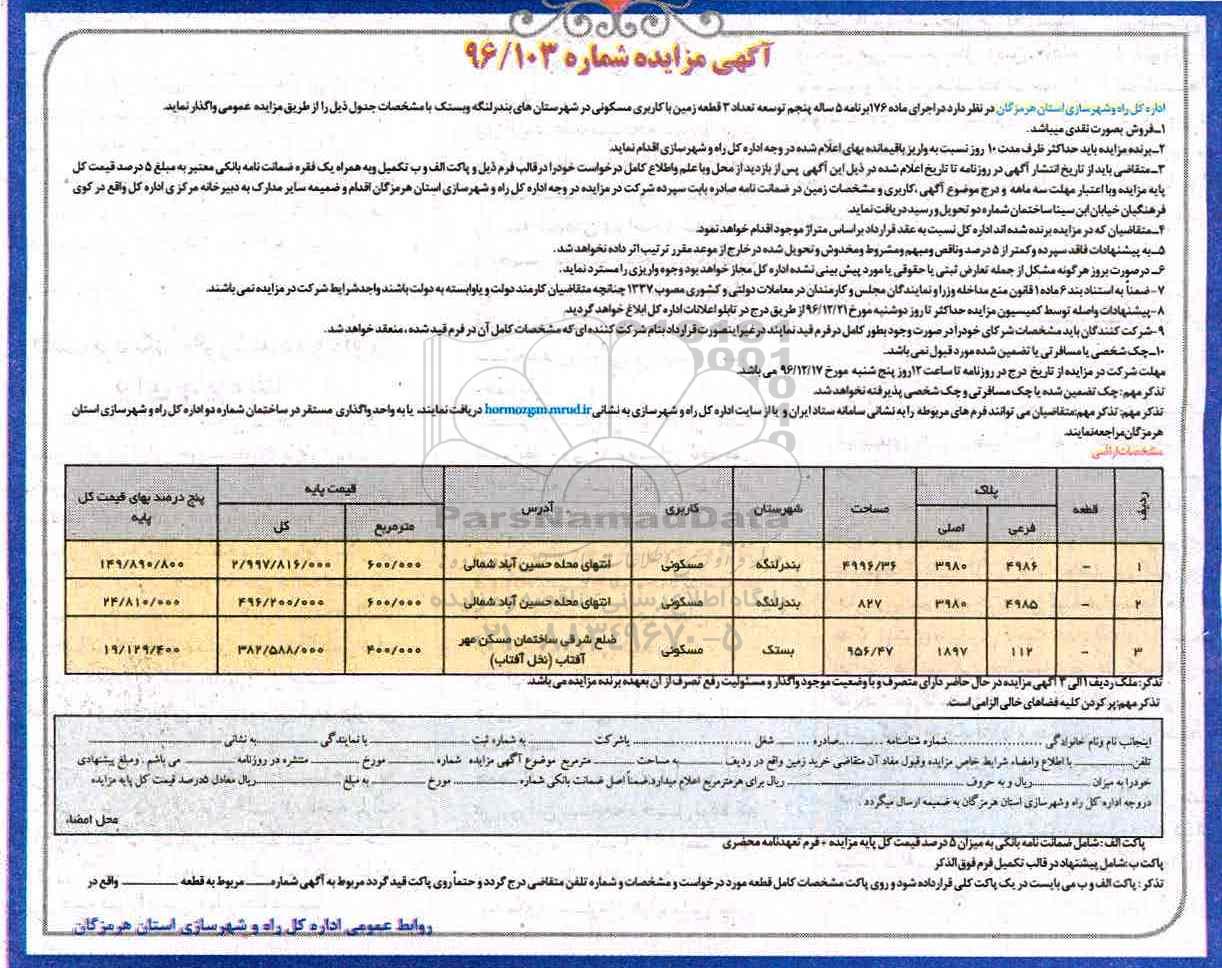 آگهی مزایده شماره ۹۶/۱۰۳
اداره کل راه وشهرسازی استان هرمزگان در نظر دارد در اجرای ماده ۱۷۶ برنامه ۵ ساله پنجم توسعه تعداد ۳ قطعه زمین با کاربری مسکونی در شهرستان های بندرلنگه وبستک با مشخصات جدول ذیل را از طریق مزایده عمومی واگذار نماید.
۱ــ فروش بصورت نقدی میباشد.
۲ــ برنده مزایده باید حداکثر ظرف مدت ۱۰ روز نسبت به واریز باقیمانده بهای اعلام شده در وجه اداره کل راه و شهرسازی اقدام نماید.
۳ــ متقاضی باید از تاریخ انتشار آگهی در روزنامه تا تاریخ اعلام شده در ذیل این آگهی پس از بازدید از محل وبا علم واطلاع کامل درخواست خودرا در قالب فرم ذیل و پاکت الف و ب تکمیل وبه همراه یک فقره ضمانت نامه بانکی معتبر به مبلغ ۵ درصد قیمت کل
پایه مزایده وبا اعتبار مهلت سه ماهه و درج موضوع آگهی ،کاربری و مشخصات زمین در ضمانت نامه صادره بابت سپرده شرکت در مزایده در وجه اداره کل راه و شهرسازی استان هرمزگان اقدام و ضمیمه سایر مدارک به دبیرخانه مرکزی اداره کل واقع در کوی
فرهنگیان خیابان ابن سینا ساختمان شماره دو تحویل و رسید دریافت نماید.
۴ــ متقاضیان که در مزایده برنده شده اند اداره کل نسبت به عقد قرارداد براساس متراژ موجود اقدام خواهد نمود.
۵ــ به پیشنهادات فاقد سپرده وکمتر از ۵ درصد وناقص ومبهم ومشروط ومخدوش و تحویل شده در خارج از موعد مقرر ترتیب اثر داده نخواهد شد.
۶ــ درصورت بروز هرگونه مشکل از جمله تعارض ثبتی یا حقوقی یا مورد پیش بینی نشده اداره کل مجاز خواهد بود وجوه واریزی را مسترد نماید.
۷- ضمناً به استناد بند ۶ ماده ۱ قانون منع مداخله وزرا و نمایندگان مجلس و کارمندان در معاملات دولتی و کشوری مصوب ۱۳۳۷ چنانچه متقاضیان کارمند دولت و یاوابسته به دولت باشند واجدشرایط شرکت در مزایده نمی باشند.
۸- پیشنهادات واصله توسط کمیسیون مزایده حداکثر تا روز دوشنبه مورخ ۹۶/۱۲/۲۱ از طریق درج در تابلو اعلانات اداره کل ابلاغ خواهد گردید.
۹- شرکت کنندگان باید مشخصات شرکای خودرا در صورت وجود بطور کامل درفرم قید نمایند در غیر اینصورت قرارداد بنام شرکت کننده ای که مشخصات کامل آن در فرم قید شده ، منعقد خواهد شد.
۱۰ــ چک شخصی یا مسافرتی یا تضمین شده مورد قبول نمی باشد.
مهلت شرکت در مزایده از تاریخ درج در روزنامه تا ساعت ۱۲ روز پنج شنبه مورخ ۹۶/۱۲/۱۷ می باشد.
تذکر مهم: چک تضمین شده یا چک مسافرتی و چک شخصی پذیرفته نخواهد شد.
تذکر مهم: تذکر مهم:متقاضیان می توانند فرم های مربوطه را به نشانی سامانه ستاد ایران و یا از سایت اداره کل راه و شهرسازی به نشانی hormozgan.mrud.ir دریافت نمایند، یا به واحد واگذاری مستقر در ساختمان شماره دو اداره کل راه و شهرسازی استان
هرمزگان مراجعه نمایند.
مشخصات اراضی
ردیف قطعه پلاک مساحت شهرستان کاربری آدرس قیمت پایه پنج درصد بهای قیمت کل پایه
فرعی اصلی مترمربع کل
۱ - ۴۹۸۶ ۳۹۸۰ ۴۹۹۶/۳۶ بندرلنگه مسکونی انتهای محله حسین آباد شمالی ۶۰۰/۰۰۰ ۲/۹۹۷/۸۱۶/۰۰۰ ۱۴۹/۸۹۰/۸۰۰
۲ - ۴۹۸۵ ۳۹۸۰ ۸۲۷ بندرلنگه مسکونی انتهای محله حسین آباد شمالی ۶۰۰/۰۰۰ ۴۹۶/۲۰۰/۰۰۰ ۲۴/۸۱۰/۰۰۰
۳ - ۱۱۲ ۱۸۹۷ ۹۵۶/۴۷ بستک مسکونی ضلع شرقی ساختمان مسکن مهر آفتاب (نخل آفتاب) ۴۰۰/۰۰۰ ۳۸۲/۵۸۸/۰۰۰ ۱۹/۱۲۹/۴۰۰
ParsNamadData
پایگاه اطلاع رسانی مناقصه مزایده
۰۲۱-۸۸۳۴۹۶۷۰-۵
تذکر: ملک ردیف ۱ الی ۳ آگهی مزایده در حال حاضر دارای متصرف و با وضعیت موجود واگذار و مسئولیت رفع تصرف از آن بعهده برنده مزایده می باشد.
تذکر مهم:پر کردن کلیه فضاهای خالی الزامی است.
اینجانب نام ونام خانوادگی ........ شماره شناسنامه ........ صادره ........ شغل ........ یاشرکت ........ به شماره ثبت ........ با نمایندگی ........ به نشانی ........
تلفن ........ با اطلاع وامضاء شرایط خاص مزایده وقبول مفاد آن متقاضی خرید زمین واقع در ردیف ........ به مساحت ........ مترمربع موضوع آگهی مزایده شماره ........ مورخ ........ منتشره در روزنامه ........ می باشم . ومبلغ پیشنهادی
خودرا به میزان ........ ریال و به حروف ........ ریال برای هرمترمربع اعلام میدارد.ضمناً اصل ضمانت بانکی شماره ........ مورخ ........ به مبلغ ........ ریال معادل ۵درصد قیمت کل پایه مزایده
دروجه اداره کل راه وشهرسازی استان هرمزگان به ضمیمه ارسال میگردد .
محل امضاء
پاکت الف : شامل ضمانت نامه بانکی به میزان ۵ درصد قیمت کل پایه مزایده + فرم تعهدنامه محضری
پاکت ب:شامل پیشنهاد در قالب تکمیل فرم فوق الذکر
تذکر : پاکت الف و ب می بایست در یک پاکت کلی قرارداده شود و روی پاکت مشخصات کامل قطعه مورد درخواست و مشخصات و شماره تلفن متقاضی درج گردد و حتماً روی پاکت قید گردد مربوط به آگهی شماره ........ مربوط به قطعه ........ واقع در
روابط عمومی اداره کل راه و شهرسازی استان هرمزگان